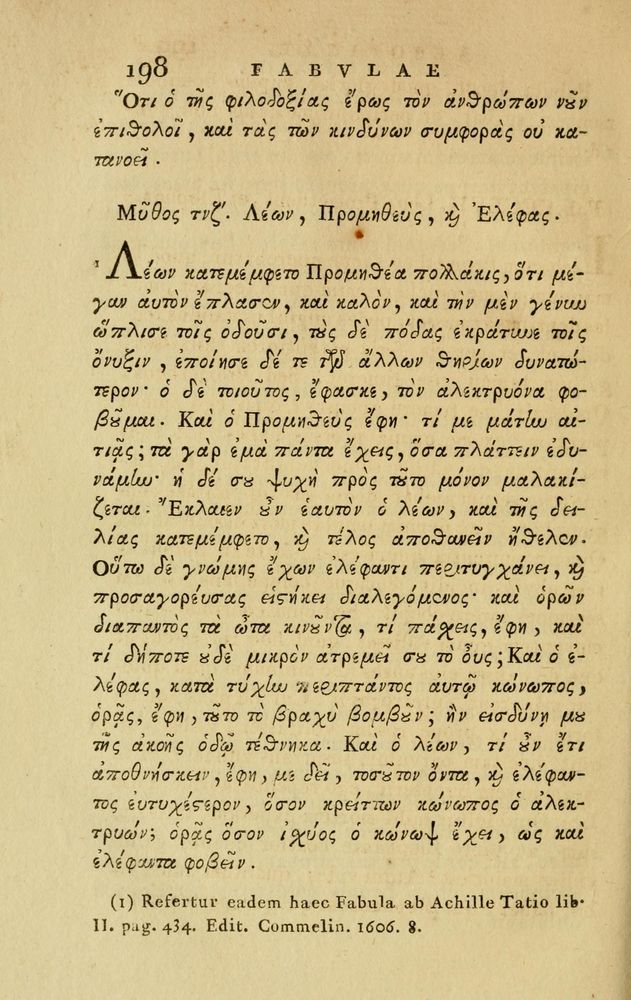 198 FABVLAE
Ὅτι ὁ τῆς φιλοδοξίας ἔρως τὸν ἀνθρώπων νοῦν
ἐπιθολοῖ, καὶ τὰς τῶν κινδύνων συμφορὰς οὐ κα-
τανοεῖ.
Μῦθος τνζʹ. Λέων, Προμηθεὺς, ϗ Ἐλέφας.
¹ Λέων κατεμέμφετο Προμηθέα πολλάκις, ὅτι μέ-
γαν αὐτὸν ἔπλασεν, καὶ καλὸν, καὶ τὴν μὲν γένυν
ὥπλισε τοῖς ὀδοῦσι, τοὺς δὲ πόδας ἐκράτυνε τοῖς
ὄνυξιν, ἐποίησε δέ τε τῶν ἄλλων θηρίων δυνατώ-
τερον· ὁ δὲ τοιοῦτος, ἔφασκε, τὸν ἀλεκτρυόνα φο-
βοῦμαι. Καὶ ὁ Προμηθεὺς ἔφη· τί με μάτην αἰ-
τιᾷς; τὰ γὰρ ἐμὰ πάντα ἔχεις, ὅσα πλάττειν ἐδυ-
νάμην· ἡ δέ σου ψυχὴ πρὸς τοῦτο μόνον μαλακί-
ζεται. Ἔκλαιεν οὖν ἑαυτὸν ὁ λέων, καὶ τῆς δει-
λίας κατεμέμφετο, ϗ τέλος ἀποθανεῖν ἤθελεν.
Οὕτω δὲ γνώμης ἔχων ἐλέφαντι περιτυγχάνει, ϗ
προσαγορεύσας εἱστήκει διαλεγόμενος· καὶ ὁρῶν
διαπαντὸς τὰ ὦτα κινοῦντα, τί πάσχεις, ἔφη, καὶ
τί δήποτε οὐδὲ μικρὸν ἀτρεμεῖ σου τὸ οὖς; Καὶ ὁ ἐ-
λέφας, κατὰ τύχην περιπτάντος αὐτῷ κώνωπος,
ὁρᾷς, ἔφη, τοῦτο τὸ βραχὺ βομβοῦν; ἢν εἰσδύνῃ μου
τῆς ἀκοῆς ὁδῷ τέθνηκα. Καὶ ὁ λέων, τί οὖν ἔτι
ἀποθνήσκειν, ἔφη, με δεῖ, τοσοῦτον ὄντα, ϗ ἐλέφαν-
τος εὐτυχέστερον, ὅσον κρείττων κώνωπος ὁ ἀλεκ-
τρυών; ὁρᾷς ὅσον ἰσχύος ὁ κώνωψ ἔχει, ὡς καὶ
ἐλέφαντα φοβεῖν.
(1) Refertur eadem haec Fabula ab Achille Tatio lib.
II. pag. 434. Edit. Commelin. 1606. 8.